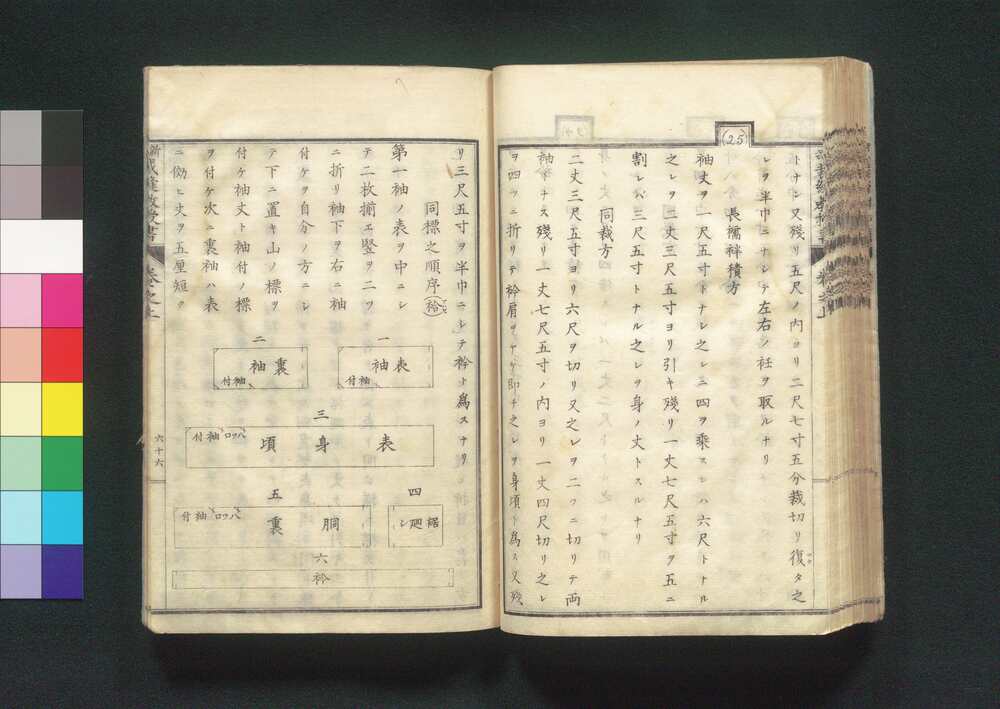 (25)
トナシ又殘リ五尺ノ内ヨリ二尺七寸五分裁切リ復タ之
レヲ半巾ニナシテ左右ノ衽ヲ取ルナリ
長襦袢積方
袖丈ヲ一尺五寸トナシ之レニ四ヲ乘スレハ六尺トナル
之レヲ二丈三尺五寸ヨリ引キ殘リ一丈七尺五寸ヲ五ニ
割レバ三尺五寸トナル之レヲ身ノ丈トスルナリ
同裁方
二丈三尺五寸ヨリ六尺ヲ切リ又之レヲ二ツニ切リテ兩
袖トナス殘リ一丈七尺五寸ノ内ヨリ一丈四尺切リ之レ
ヲ四ツニ折リテ衿肩ヲヤケ即チ之レヲ身頃ト爲ス又殘
リ三尺五寸ヲ半巾ニシテ衿ト爲スナリ
同標之順序(袷)
第一袖ノ表ヲ中ニシ
テ二枚揃エ竪ヲ二ツ
ニ折リ袖下ヲ右ニ袖
付ケヲ自分ノ方ニシ
テ下ニ置キ山ノ標ヲ
付ケ袖丈ト袖付ノ標
ヲ付ケ次ニ裏袖ハ表
ニ傚ヒ丈ヲ五厘短ク
一
表袖
袖付
二
裏袖
袖付
三
表身頃
八ツ口
袖付
四
裾廻シ
五
胴裏
八ツ口
袖付
六
衿
卷之上
六十六